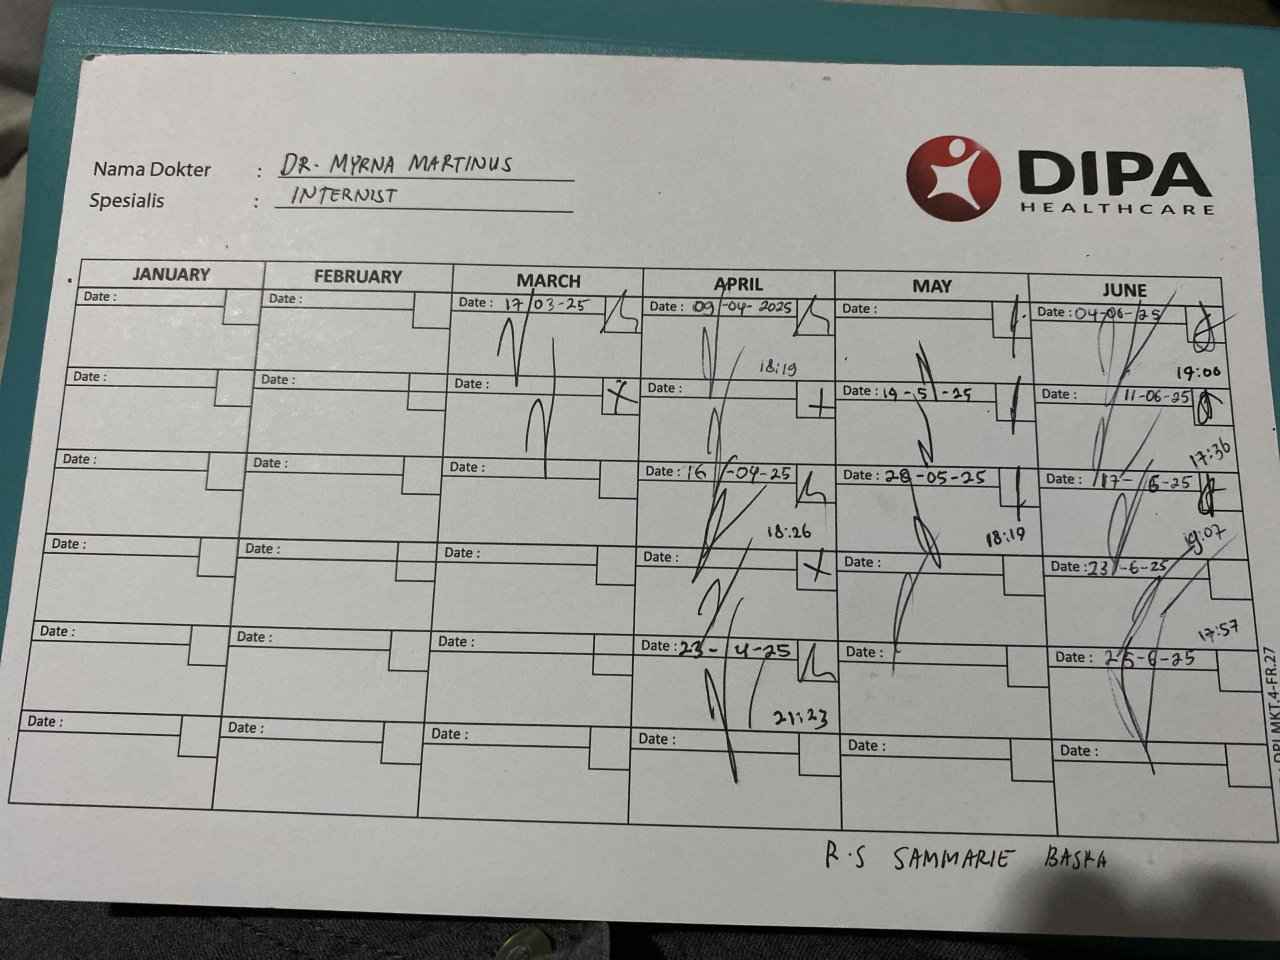 Nama Dokter : DR. MYRNA MARTINUS
Spesialis : INTERNIST
DIPA
HEALTHCARE
JANUARY FEBRUARY MARCH APRIL MAY JUNE
Date : Date : Date : 17/03-25 Date : 09-04-2025 Date : Date : 04-06-25
18:19 19:00
Date : Date : Date : Date : Date : 19-5-25 Date : 11-06-25
17:36
Date : Date : Date : Date : 16-04-25 Date : 28-05-25 Date : 17-6-25
18:26 18:19 19:07
Date : Date : Date : Date : Date : Date : 23-6-25
17:57
Date : Date : Date : Date : 23-4-25 Date : Date : 25-6-25
21:23
Date : Date : Date : Date : Date : Date :
R.S SAMMARIE BASRA
MKT.4-FR.27